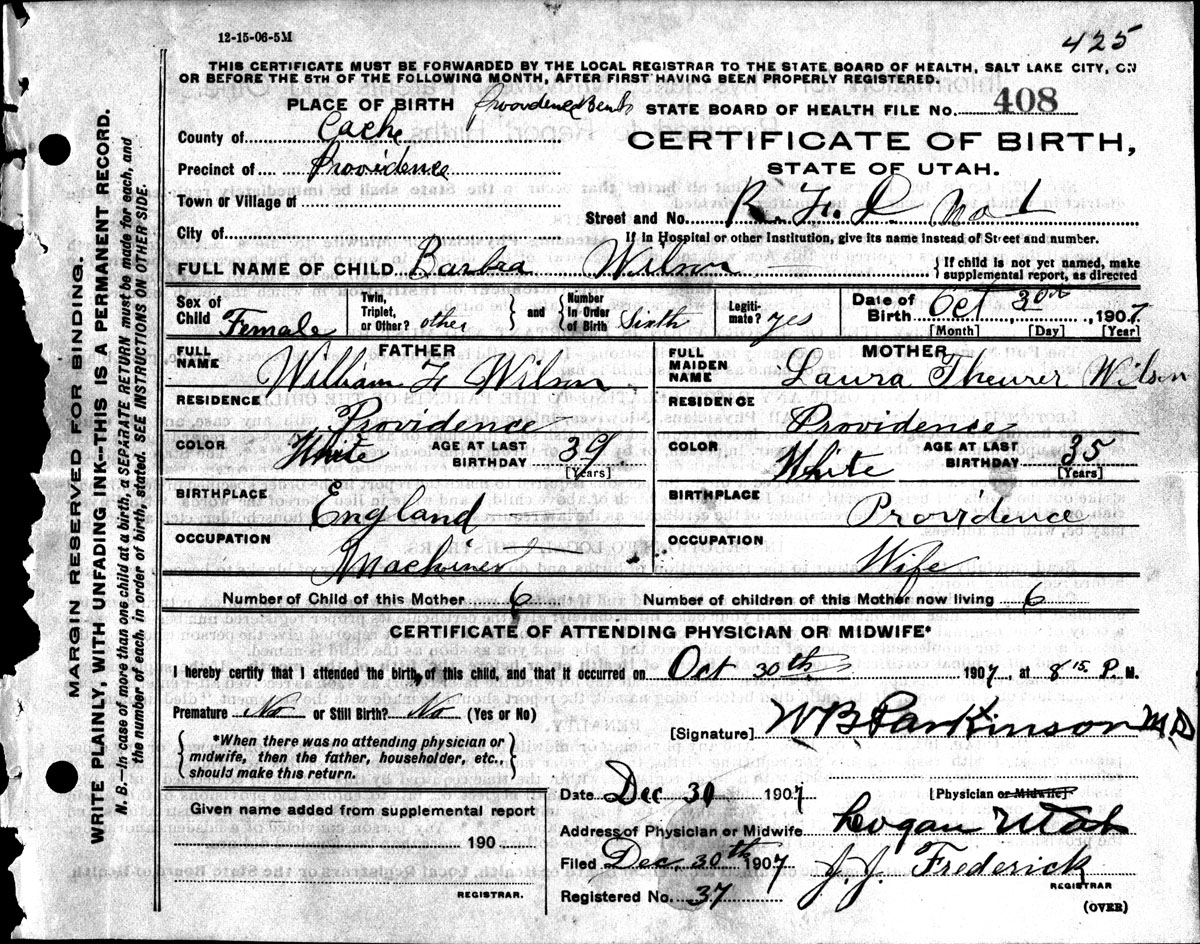 12-15-06-5M
425
THIS CERTIFICATE MUST BE FORWARDED BY THE LOCAL REGISTRAR TO THE STATE BOARD OF HEALTH, SALT LAKE CITY, ON
OR BEFORE THE 5TH OF THE FOLLOWING MONTH, AFTER FIRST HAVING BEEN PROPERLY REGISTERED.
PLACE OF BIRTH Providence Bench
STATE BOARD OF HEALTH FILE No. 408
County of Cache
CERTIFICATE OF BIRTH,
STATE OF UTAH.
Precinct of Providence
Town or Village of
Street and No. R. F. D No 1
City of
If in Hospital or other Institution, give its name instead of Street and number.
FULL NAME OF CHILD Barbra Wilson
{ If child is not yet named, make
supplemental report, as directed
Sex of Child Female
Twin, Triplet, or Other? other
and { Number In Order of Birth Sixth
Legiti-mate? yes
Date of Birth Oct 30th, 1907
[Month] [Day] [Year]
FATHER
FULL NAME William F Wilson
MOTHER
FULL MAIDEN NAME Laura Theurer Wilson
RESIDENCE Providence
RESIDENCE Providence
COLOR White AGE AT LAST BIRTHDAY 39 [Years]
COLOR White AGE AT LAST BIRTHDAY 35 [Years]
BIRTHPLACE England
BIRTHPLACE Providence
OCCUPATION Machiner
OCCUPATION Wife
Number of Child of this Mother 6 Number of children of this Mother now living 6
CERTIFICATE OF ATTENDING PHYSICIAN OR MIDWIFE*
I hereby certify that I attended the birth of this child, and that it occurred on Oct 30th 1907, at 8 15 P. M.
Premature No or Still Birth? No (Yes or No)
[Signature] W B Parkinson M.D
{ *When there was no attending physician or
midwife, then the father, householder, etc.,
should make this return. }
[Physician or Midwife]
Date Dec 30 1907
Given name added from supplemental report
190
REGISTRAR.
Address of Physician or Midwife Logan Utah
Filed Dec. 30th 1907 J. J. Frederick
REGISTRAR
Registered No. 37
(OVER)
MARGIN RESERVED FOR BINDING.
WRITE PLAINLY, WITH UNFADING INK—THIS IS A PERMANENT RECORD.
N. B.—In case of more than one child at a birth, a SEPARATE RETURN must be made for each, and
the number of each, in order of birth, stated. SEE INSTRUCTIONS ON OTHER SIDE.